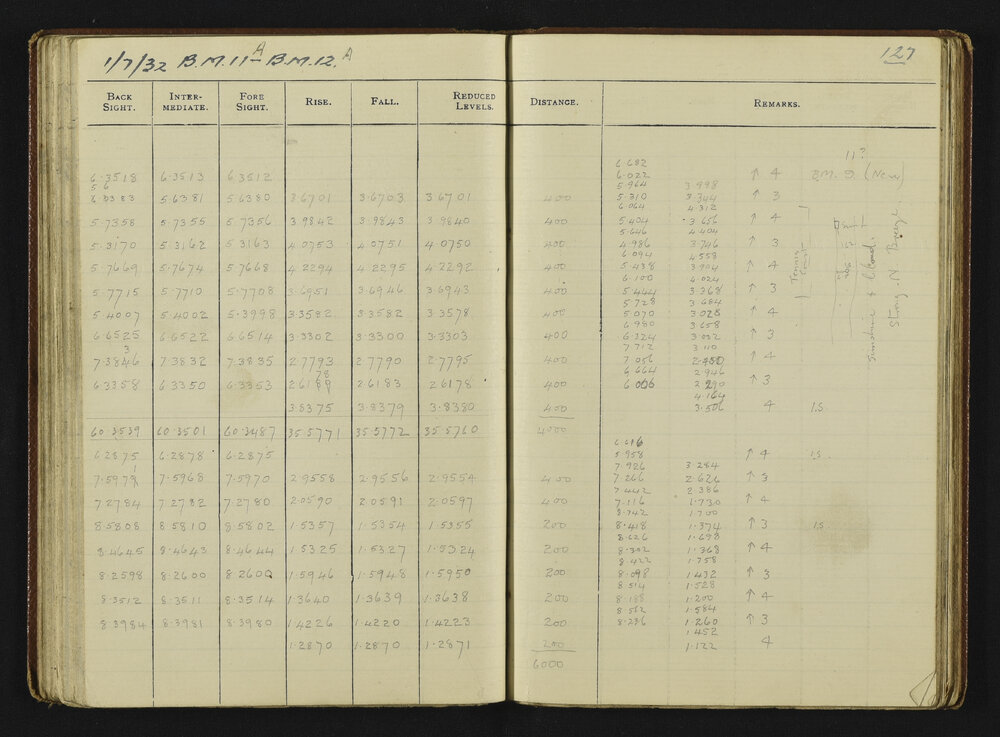 1/7/32 B.M.11A - B.M.12.A
127
BACK SIGHT. INTER-MEDIATE. FORE SIGHT. RISE. FALL. REDUCED LEVELS. DISTANCE. REMARKS.
11?
6.682
6.3518 6.3513 6.3512 6.022 ↑ 4 B.M. (New)
5 6 5.964 3.998
6.0383 5.6381 5.6380 3.6701 3.6703 3.6701 400 5.310 3.344 ↑ 3
6.064 4.312
5.7358 5.7355 5.7356 3.9842 3.9843 3.9840 400 5.404 3.656 ↑ 4
5.646 4.404
5.3170 5.3162 5.3163 4.0753 4.0751 4.0750 400 4.986 3.746 ↑ 3
6.094 4.558
5.7669 5.7674 5.7668 4.2294 4.2295 4.2292 400 5.438 3.904 ↑ 4
6.100 4.024
5.7715 5.7710 5.7708 3.6951 3.6946 3.6943 400 5.444 3.368 ↑ 3
5.728 3.684
5.4007 5.4002 5.3998 3.3582 3.3582 3.3578 400 5.070 3.028 ↑ 4
6.980 3.658
6.6525 6.6522 6.6514 3.3302 3.3300 3.3303 400 6.324 3.002 ↑ 3
3 7.712 3.110
7.3846 7.3832 7.3835 2.7793 2.7790 2.7795 400 7.056 2.450 ↑ 4
78 6.664 2.946
6.3358 6.3350 6.3353 2.6189 2.6183 2.6178 400 6.006 2.290 ↑ 3
4.164
3.8375 3.8379 3.8380 400 3.506 4 I.S
60.3539 60.3501 60.3487 35.5771 35.5772 35.5760 4000
6.616
6.2875 6.2878 6.2875 5.958 ↑ 4 I.S
7.926 3.284
7.5971 7.5968 7.5970 2.9558 2.9556 2.9554 400 7.266 2.626 ↑ 3
7.442 2.386
7.2784 7.2782 7.2780 2.0590 2.0591 2.0597 400 7.116 1.730 ↑ 4
8.742 1.700
8.5808 8.5810 8.5802 1.5357 1.5354 1.5355 200 8.418 1.374 ↑ 3 I.S
8.626 1.698
8.4645 8.4643 8.4644 1.5325 1.5327 1.5324 200 8.302 1.368 ↑ 4
8.422 1.758
8.2598 8.2600 8.2600 1.5946 1.5948 1.5950 200 8.098 1.432 ↑ 3
8.514 1.528
8.3512 8.3511 8.3514 1.3640 1.3639 1.3638 200 8.188 1.200 ↑ 4
8.562 1.584
8.3984 8.3981 8.3980 1.4226 1.4220 1.4223 200 8.236 1.260 ↑ 3
1.452
1.2870 1.2870 1.2871 200 1.122 4
6000
Sunshine &
Strong N